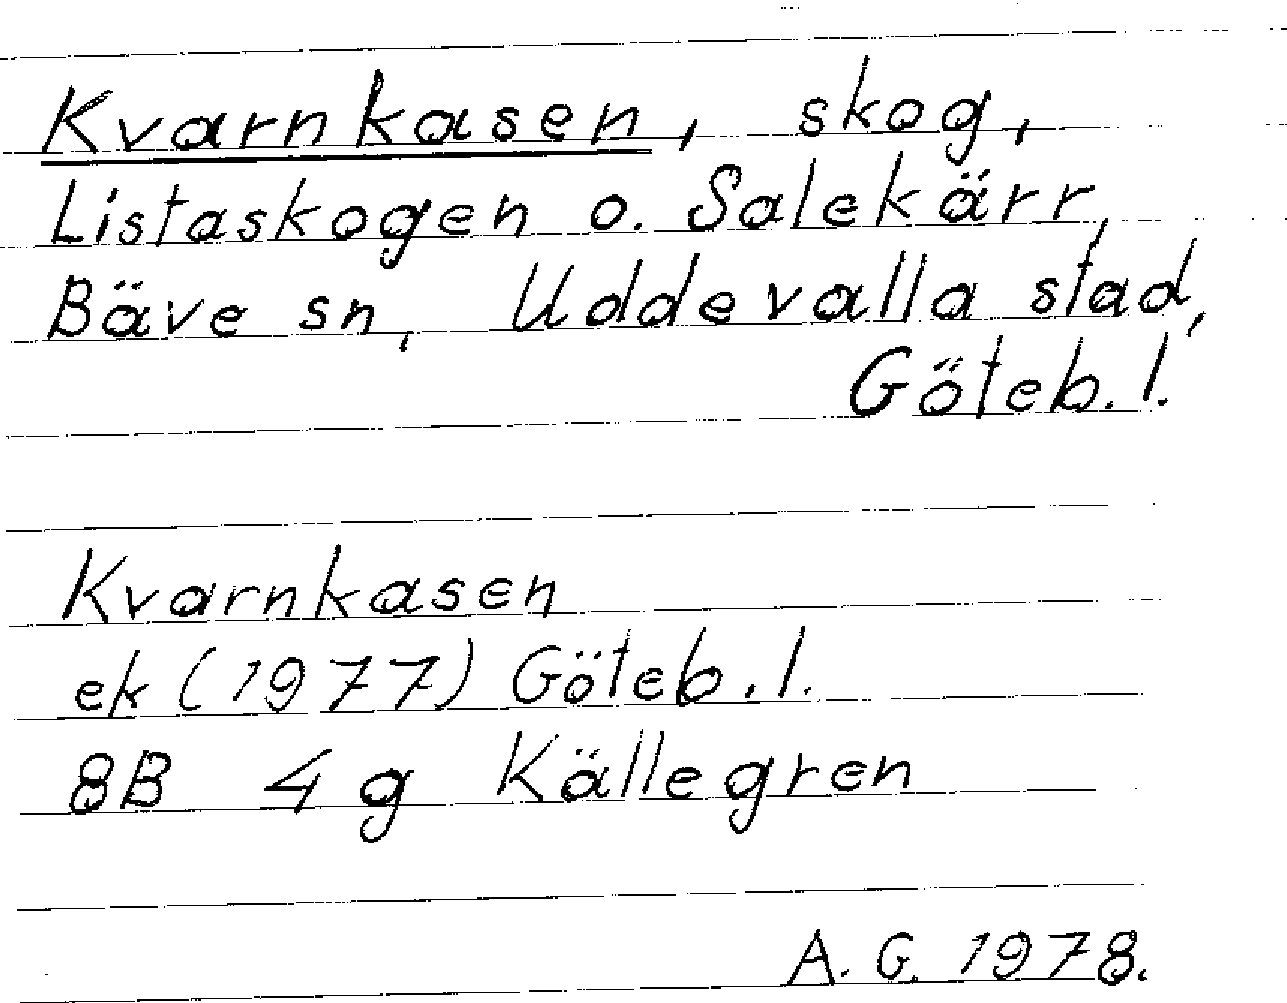 Kvarnkasen, skog,
Listaskogen o. Salekärr,
Bäve sn, Uddevalla stad,
Göteb. l.
Kvarnkasen
ek (1977) Göteb. l.
8B 4g Källegren
A. G. 1978.